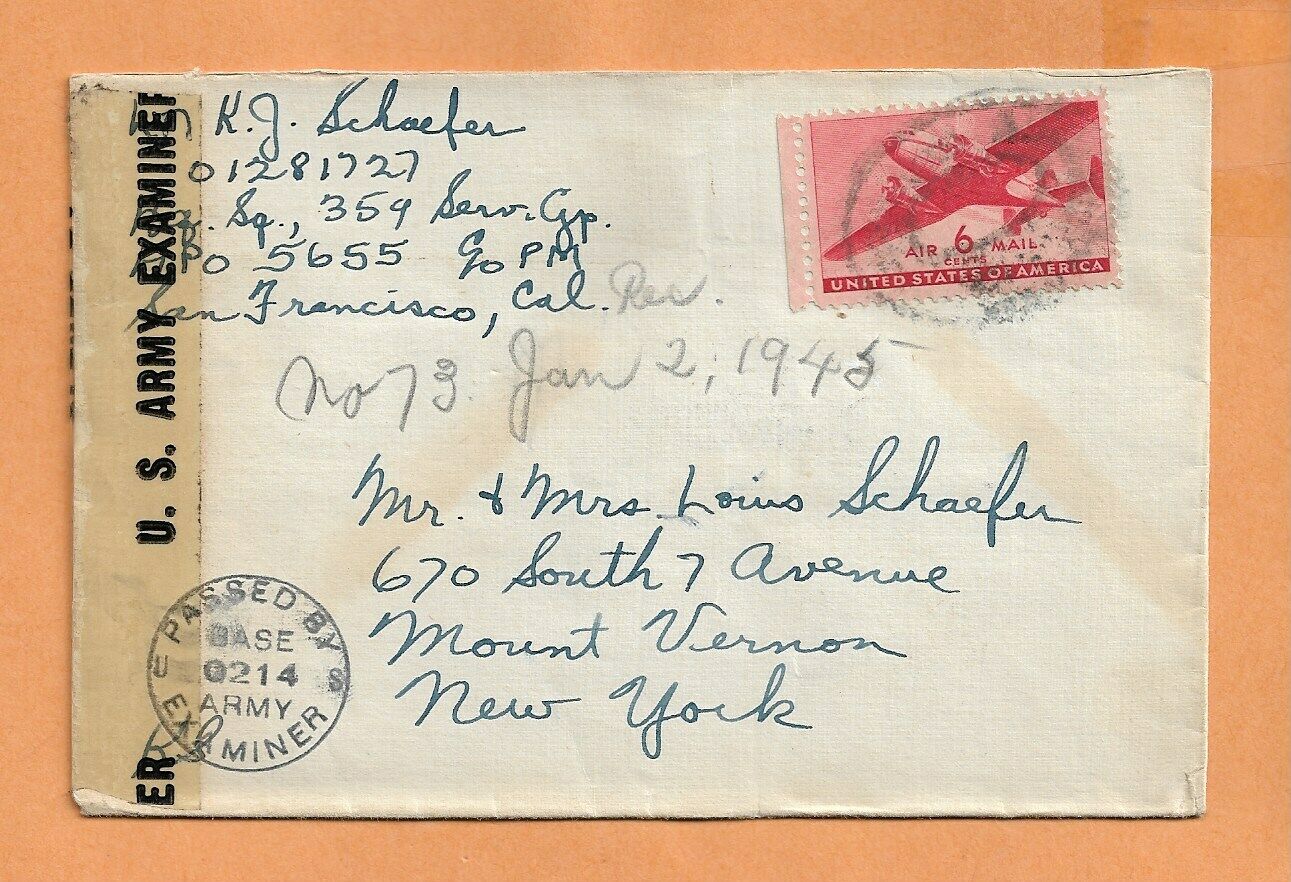 K.J. Schaefer
01281727
Sq., 359 Serv. Gp.
PO 5655 c/o PM
San Francisco, Cal.
Rec.
No 73. Jan 2, 1945
AIR 6 MAIL
CENTS
UNITED STATES OF AMERICA
Mr. & Mrs. Louis Schaefer
670 South 7 Avenue
Mount Vernon
New York
U. S. ARMY EXAMINER
ER
PASSED BY
BASE
U 0214 S
ARMY
EXAMINER